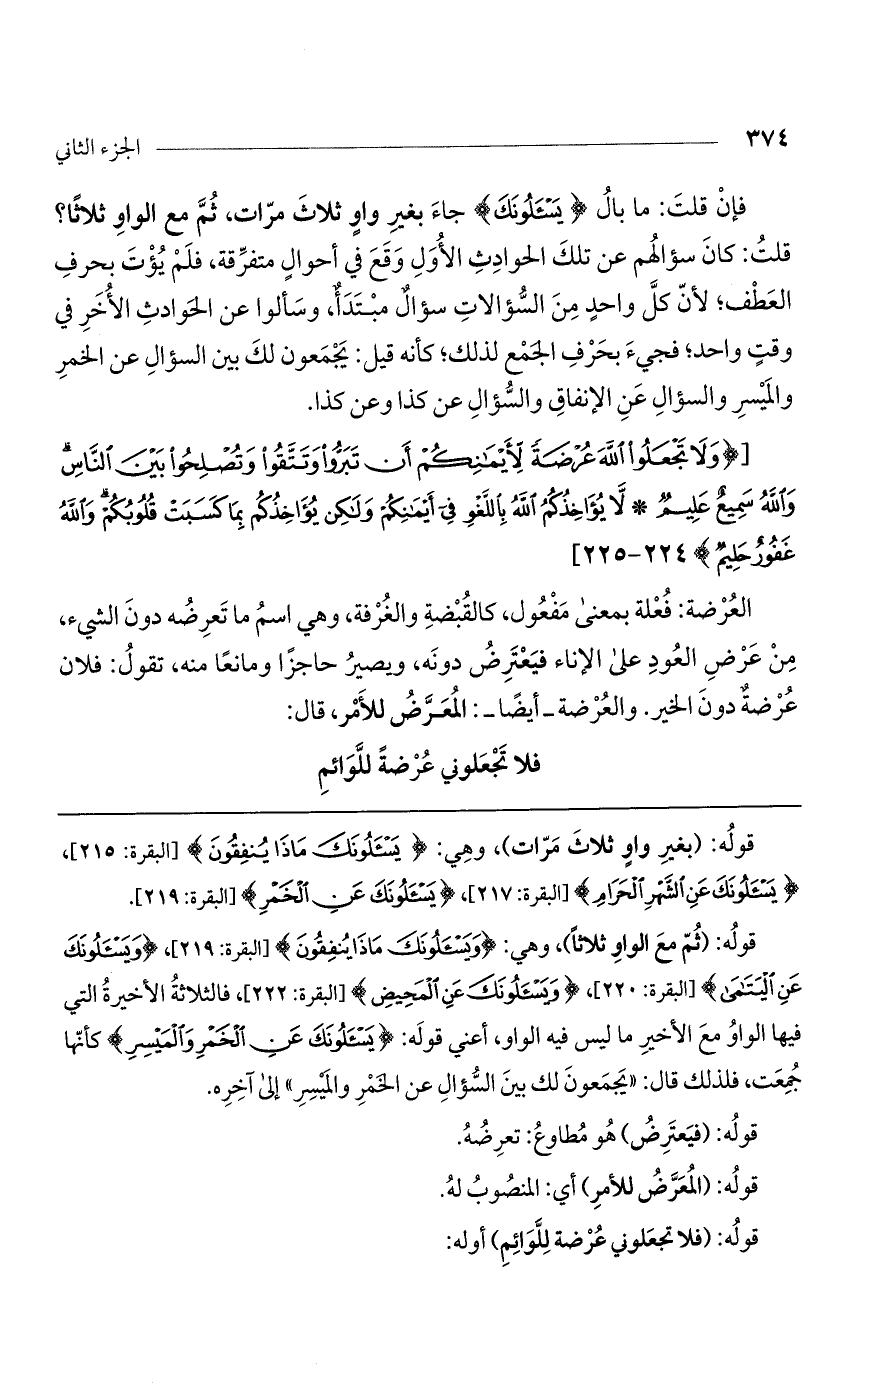 ٣٧٤ الجزء الثاني
فإنْ قلتَ: ما بالُ ﴿يَسْـَٔلُونَكَ﴾ جاءَ بغيرِ واوٍ ثلاثَ مرّات، ثُمَّ مع الواوِ ثلاثًا؟
قلتُ: كانَ سؤالُهم عن تلكَ الحوادِثِ الأُوَلِ وَقَعَ في أحوالٍ متفرِّقة، فلَمْ يُؤْتَ بحرفِ
العَطْف؛ لأنّ كلَّ واحدٍ مِنَ السُّؤالاتِ سؤالٌ مبْتَدَأٌ، وسَألوا عن الحَوادثِ الأُخَرِ في
وقتٍ واحد؛ فجيءَ بحَرْفِ الجَمْعِ لذلك؛ كأنه قيل: يَجْمَعون لكَ بين السؤالِ عن الخمرِ
والمَيْسِرِ والسؤالِ عَنِ الإنفاقِ والسُّؤالِ عن كذا وعن كذا.
[﴿وَلَا تَجْعَلُوا۟ ٱللَّهَ عُرْضَةً لِّأَيْمَـٰنِكُمْ أَن تَبَرُّوا۟ وَتَتَّقُوا۟ وَتُصْلِحُوا۟ بَيْنَ ٱلنَّاسِ ۗ
وَٱللَّهُ سَمِيعٌ عَلِيمٌ * لَّا يُؤَاخِذُكُمُ ٱللَّهُ بِٱللَّغْوِ فِىٓ أَيْمَـٰنِكُمْ وَلَـٰكِن يُؤَاخِذُكُم بِمَا كَسَبَتْ قُلُوبُكُمْ ۗ وَٱللَّهُ
غَفُورٌ حَلِيمٌ﴾ ٢٢٤-٢٢٥]
العُرْضة: فُعْلة بمعنىٰ مَفْعُول، كالقُبْضةِ والغُرْفة، وهي اسمُ ما تَعرِضُه دونَ الشيء،
مِنْ عَرْضِ العُودِ علىٰ الإناء فيَعْتَرِضُ دونَه، ويصيرُ حاجزًا ومانعًا منه، تقولُ: فلان
عُرْضةٌ دونَ الخير. والعُرْضة ـ أيضًا ـ: المُعَرَّضُ للأمْر، قال:
فلا تَجْعَلوني عُرْضةً للَّوَائمِ
قولُه: (بغيرِ واوٍ ثلاثَ مَرّات)، وهِي: ﴿يَسْـَٔلُونَكَ مَاذَا يُنفِقُونَ﴾ [البقرة: ٢١٥]،
﴿يَسْـَٔلُونَكَ عَنِ ٱلشَّهْرِ ٱلْحَرَامِ﴾ [البقرة: ٢١٧]، ﴿يَسْـَٔلُونَكَ عَنِ ٱلْخَمْرِ﴾ [البقرة: ٢١٩].
قولُه: (ثُمّ معَ الواوِ ثلاثاً)، وهي: ﴿وَيَسْـَٔلُونَكَ مَاذَا يُنفِقُونَ﴾ [البقرة: ٢١٩]، ﴿وَيَسْـَٔلُونَكَ
عَنِ ٱلْيَتَـٰمَىٰ﴾ [البقرة: ٢٢٠]، ﴿وَيَسْـَٔلُونَكَ عَنِ ٱلْمَحِيضِ﴾ [البقرة: ٢٢٢]، فالثلاثةُ الأخيرةُ التي
فيها الواوُ معَ الأخيرِ ما ليس فيه الواو، أعني قولَه: ﴿يَسْـَٔلُونَكَ عَنِ ٱلْخَمْرِ وَٱلْمَيْسِرِ﴾ كأنّها
جُمِعَت، فلذلك قال: «يَجمَعونَ لك بينَ السُّؤال عن الخَمْرِ والمَيْسِرِ» إلىٰ آخِرِه.
قولُه: (فيَعتَرِضُ) هُو مُطاوعُ: تعرِضُهُ.
قولُه: (المُعَرَّضُ للأمرِ) أي: المنصُوبُ لهُ.
قولُه: (فلا تجعَلوني عُرْضة لِلَّوَائِمِ) أوله: